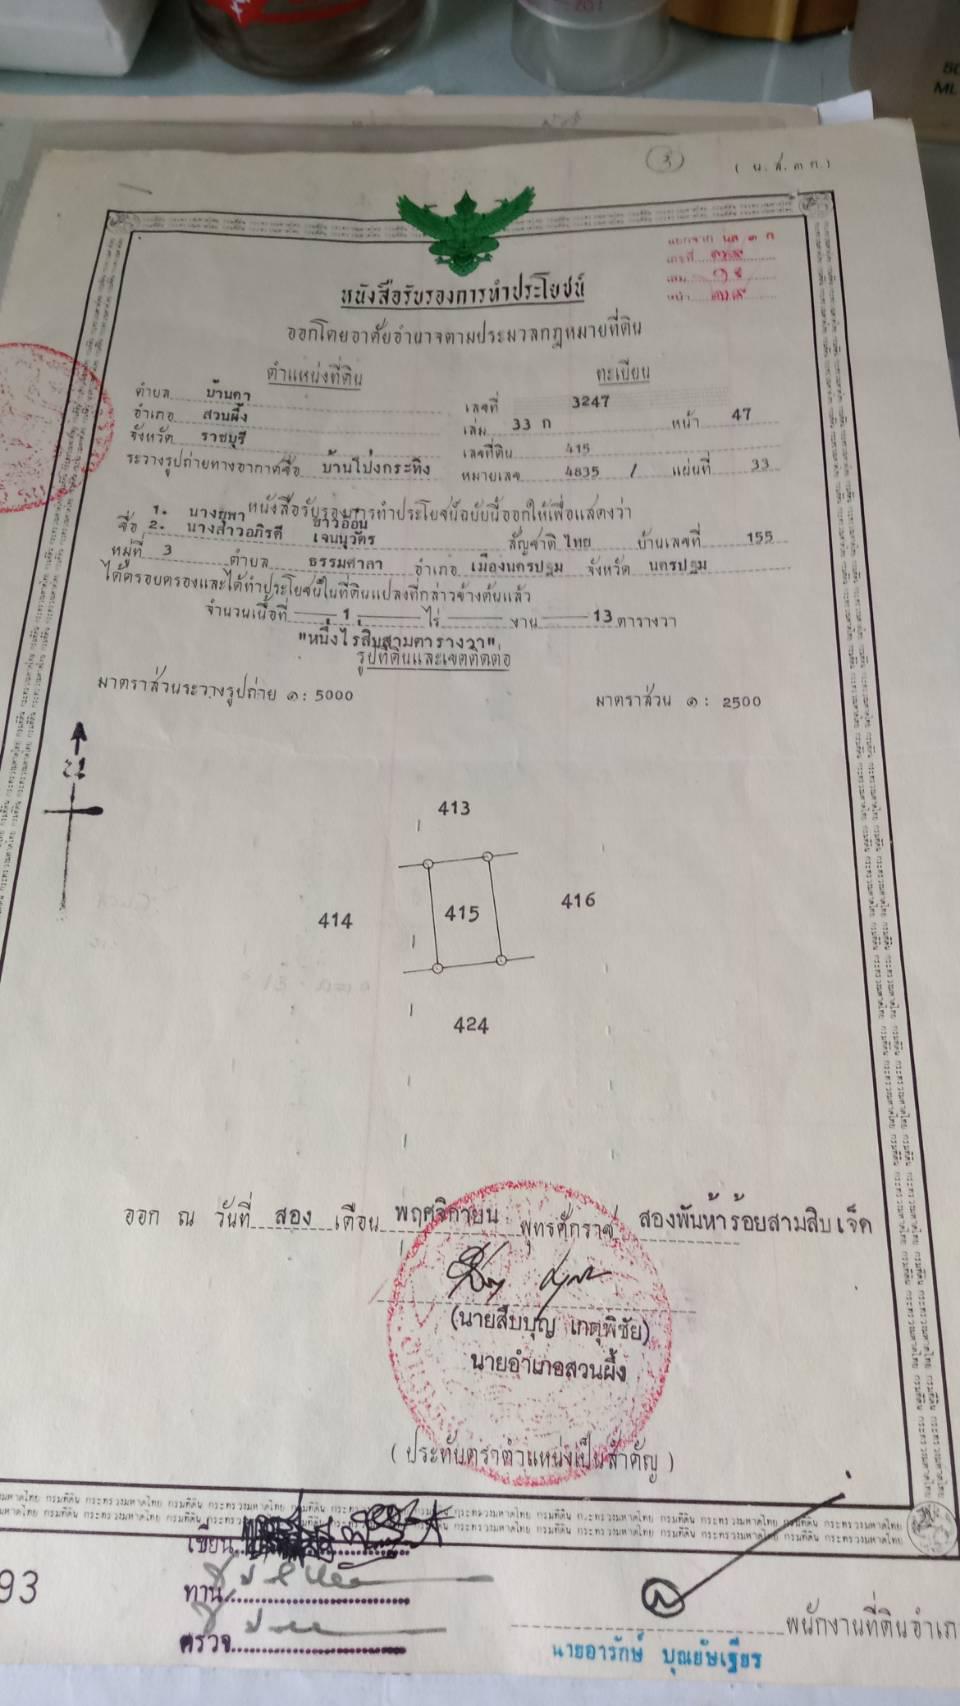 3
( น.ส. ๓ ก. )
แยกจาก นส ๓ ก
เลขที่
เล่ม ๑๕
หน้า
หนังสือรับรองการทำประโยชน์
ออกโดยอาศัยอำนาจตามประมวลกฎหมายที่ดิน
ตำแหน่งที่ดิน ทะเบียน
ตำบล บ้านคา เลขที่ 3247
อำเภอ สวนผึ้ง เล่ม 33 ก หน้า 47
จังหวัด ราชบุรี เลขที่ดิน 415
ระวางรูปถ่ายทางอากาศชื่อ บ้านโป่งกระทิง หมายเลข 4835 / แผ่นที่ 33
หนังสือรับรองการทำประโยชน์ฉบับนี้ออกให้เพื่อแสดงว่า
1. นางยุพา ขาวอ่อน
ชื่อ 2. นางสาวอภิรดี เจนนุวัตร สัญชาติ ไทย บ้านเลขที่ 155
หมู่ที่ 3 ตำบล ธรรมศาลา อำเภอ เมืองนครปฐม จังหวัด นครปฐม
ได้ครอบครองและได้ทำประโยชน์ในที่ดินแปลงที่กล่าวข้างต้นแล้ว
จำนวนเนื้อที่ 1 ไร่ งาน 13 ตารางวา
"หนึ่งไร่สิบสามตารางวา"
รูปที่ดินและเขตติดต่อ
มาตราส่วนระวางรูปถ่าย ๑ : 5000 มาตราส่วน ๑ : 2500
413
414 415 416
424
ออก ณ วันที่ สอง เดือน พฤศจิกายน พุทธศักราช สองพันห้าร้อยสามสิบเจ็ด
(นายสืบบุญ เกตุพิชัย)
นายอำเภอสวนผึ้ง
( ประทับตราตำแหน่งเป็นสำคัญ )
เขียน
ทาน
ตรวจ
93
พนักงานที่ดินอำเภ
นายอารักษ์ บุณยัษเฐียร
50
ML